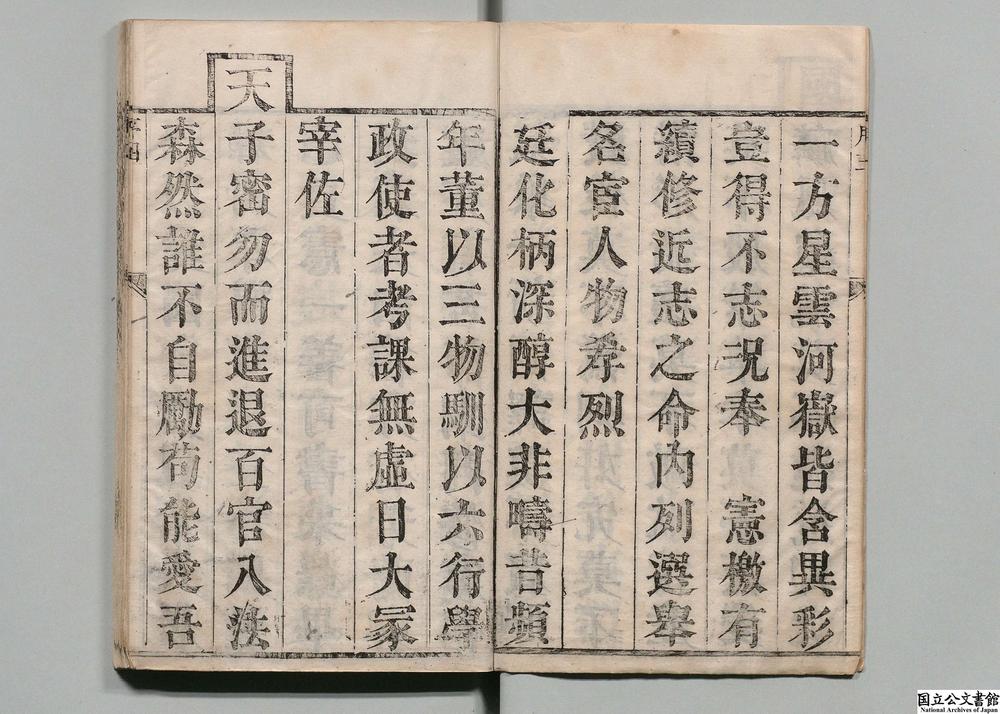 一方星雲河嶽皆含異彩
豈得不志況奉　憲檄有
續修近志之命內列選舉
名宦人物孝烈
廷化柄深醇大非疇昔頻
年董以三物馴以六行學
政使者考課無虛日大冢
宰佐
天
子密勿而進退百官八法
森然誰不自勵苟能愛吾
国立公文書館
National Archives of Japan